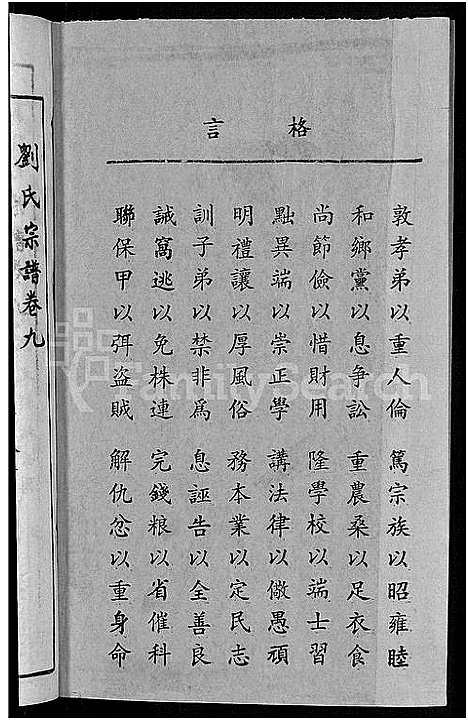 格言
敦孝弟以重人倫 篤宗族以昭雍睦
和鄉黨以息爭訟 重農桑以足衣食
尚節儉以惜財用 隆學校以端士習
黜異端以崇正學 講法律以儆愚頑
明禮讓以厚風俗 務本業以定民志
訓子弟以禁非為 息誣告以全善良
誡窩逃以免株連 完錢粮以省催科
聯保甲以弭盜賊 解仇忿以重身命
劉氏宗譜卷九
FamilySearch